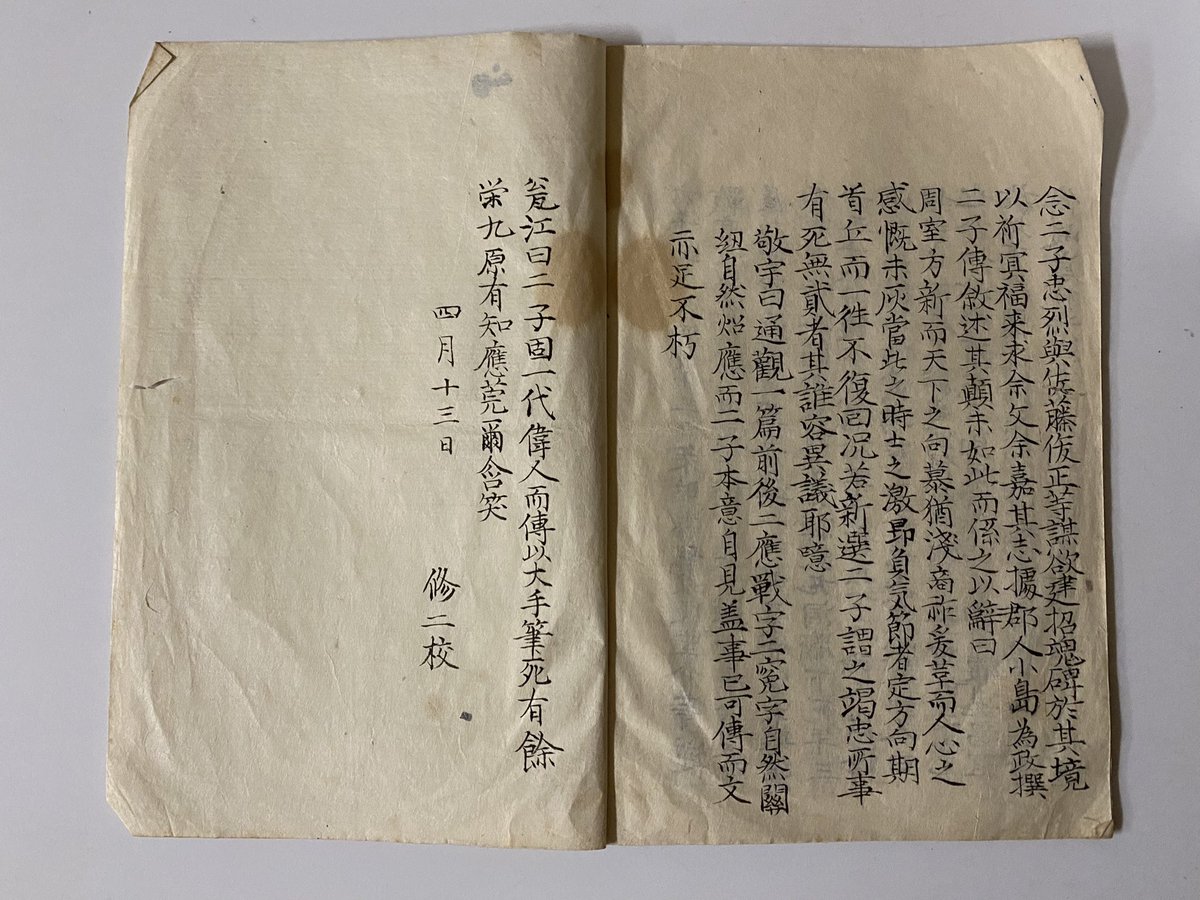 念二子忠烈與佐藤俊正等謀欲建招魂碑於其境
以祈冥福来求余文余嘉其志據郡人小島為政撰
二子傳敘述其顛末如此而係之以辭曰
周室方新而天下之向慕猶淺商祚爰革而人心之
感慨未灰當此之時士之激昂負気節者定方向期
首丘而一徃不復回况若新選二子謂之竭忠所事
有死無貳者其誰容異議耶噫
敬宇曰通觀一篇前後二應戦字二寃字自然關
紐自然炤應而二子本意自見盖事已可傳而文
亦足不朽
瓮江曰二子固一代偉人而傳以大手筆死有餘
栄九原有知應莞爾含笑
四月十三日
脩二校